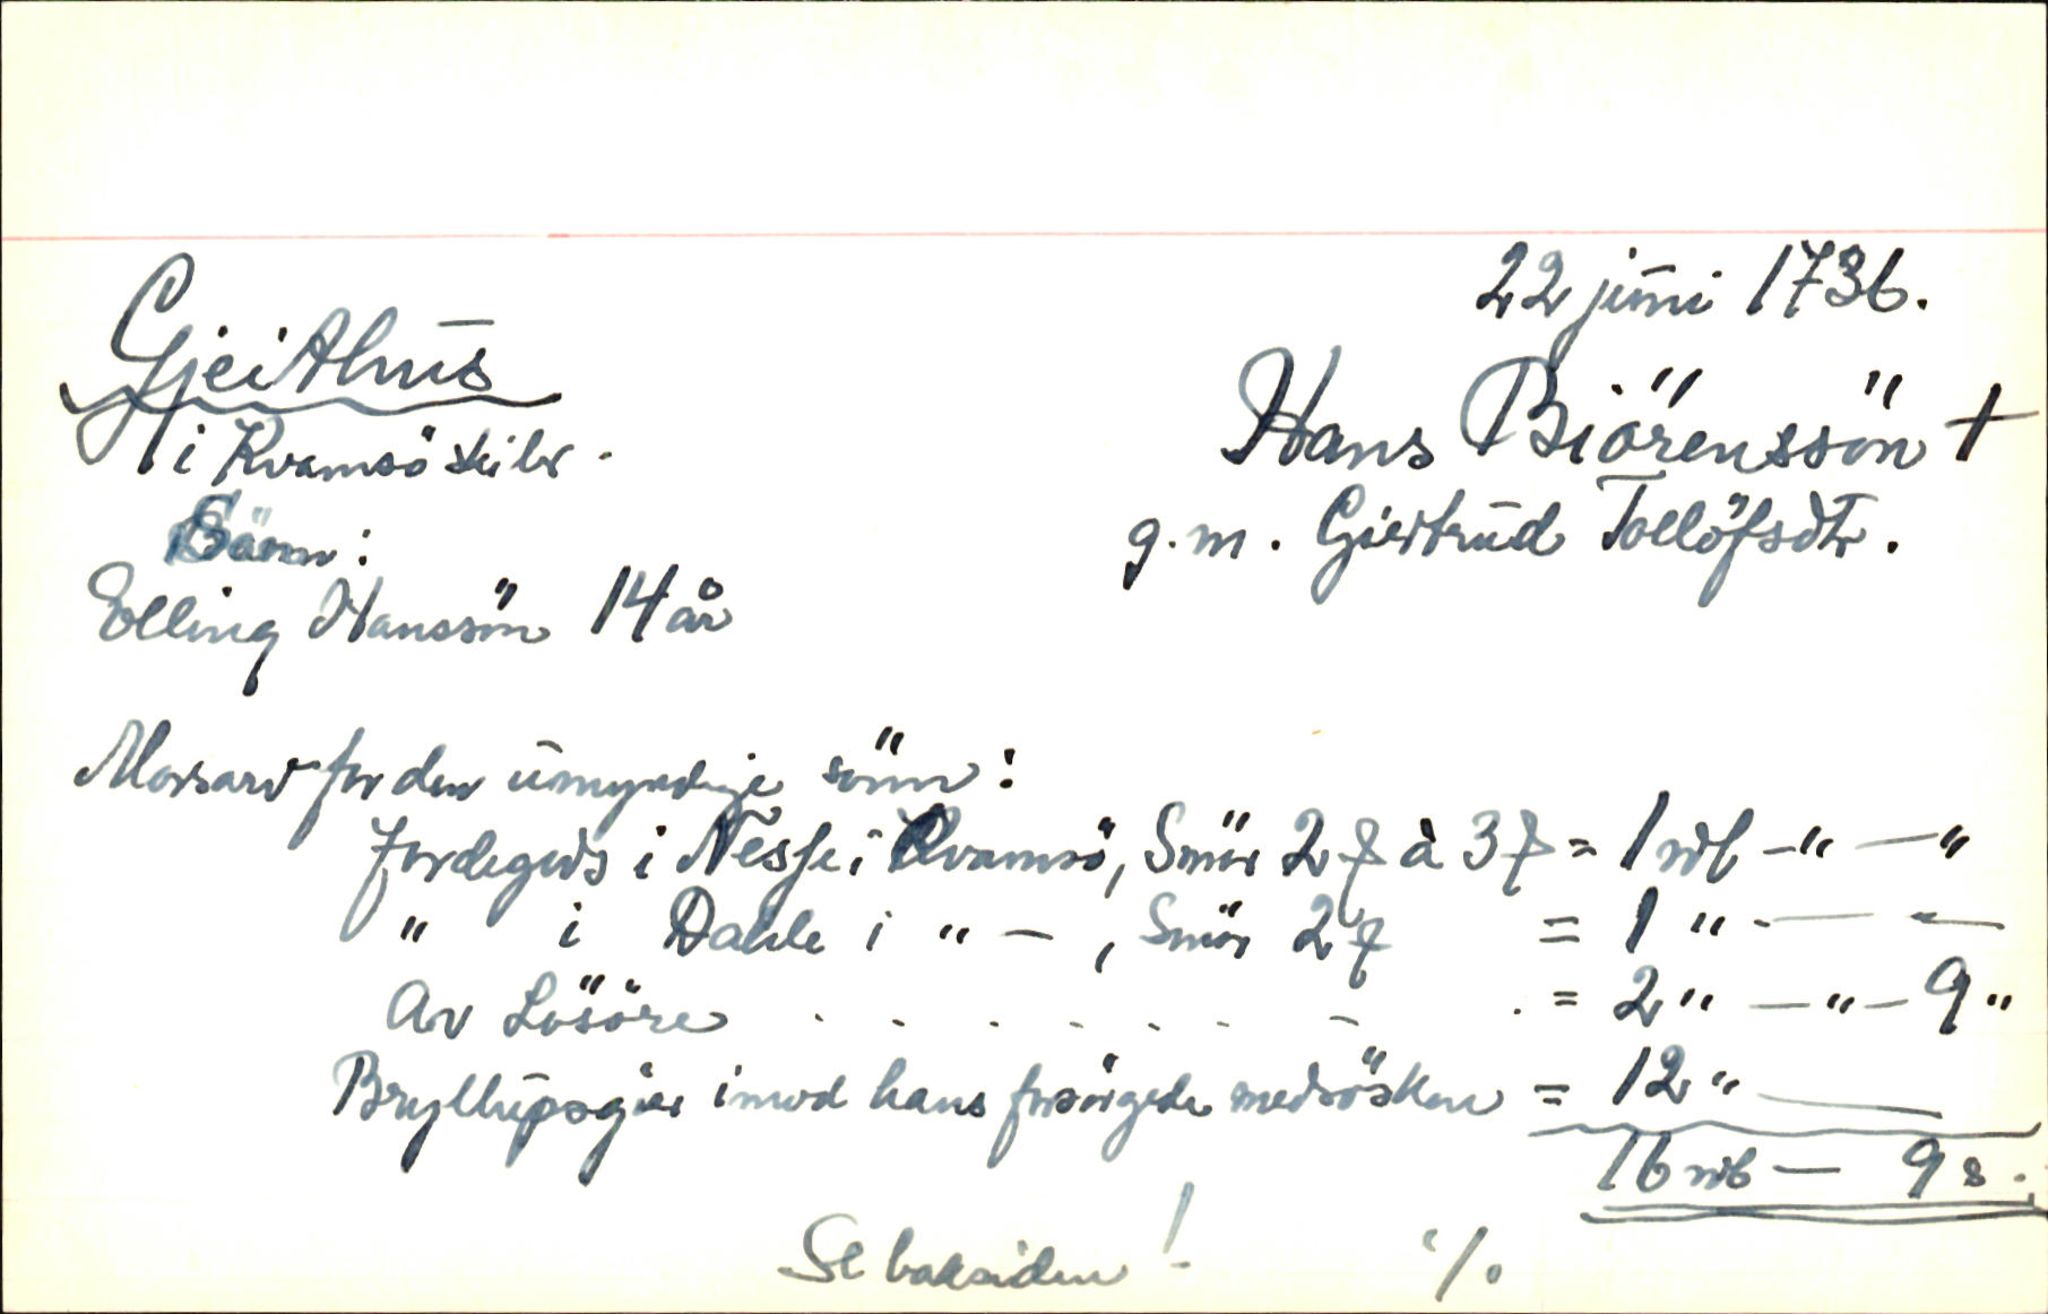 22 juni 1736.
Gjeithus
i Kvamsö skibr.
Hans Biörenssön †
g.m. Giertrud Tollöfsdtr.
Sönn:
Elling Hanssön 14 år
Morsarv for den umyndige sönn:
Jordegods i Nesse i Kvamsö, Smör 2 à 3 = 1 rdl -"-"
" i Dahle i "-, Smör 2 = 1 " - "
Av Lösöre . . . . . . . = 2 " - " - 9 "
Bryllupsgiær imod hans forsörgede medsösken = 12 "
16 rdl - 9 s.
Se baksiden! ·/.